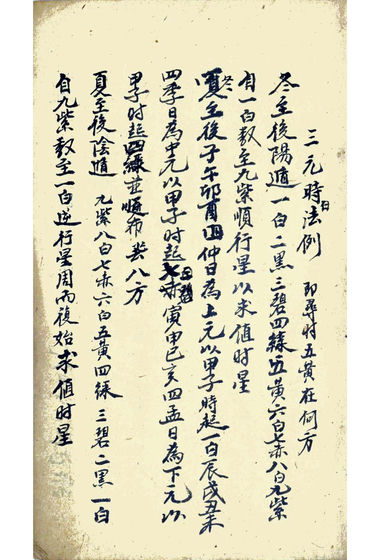 三元時日法例 即尋时五黄在何方
冬至後陽遁一白二黑三碧四綠五黄六白七赤八白九紫
自一白数至九紫順行星以求值时星
冬至後子午卯酉四仲日為上元以甲子時起一白辰戌丑未
四季日為中元以甲子时起寅申巳亥四孟日為下元以
甲子时起四綠並順布八方
夏至後陰遁 九紫八白七赤六白五黄四綠三碧二黑一白
自九紫数至一白逆行星周而復始求值时星